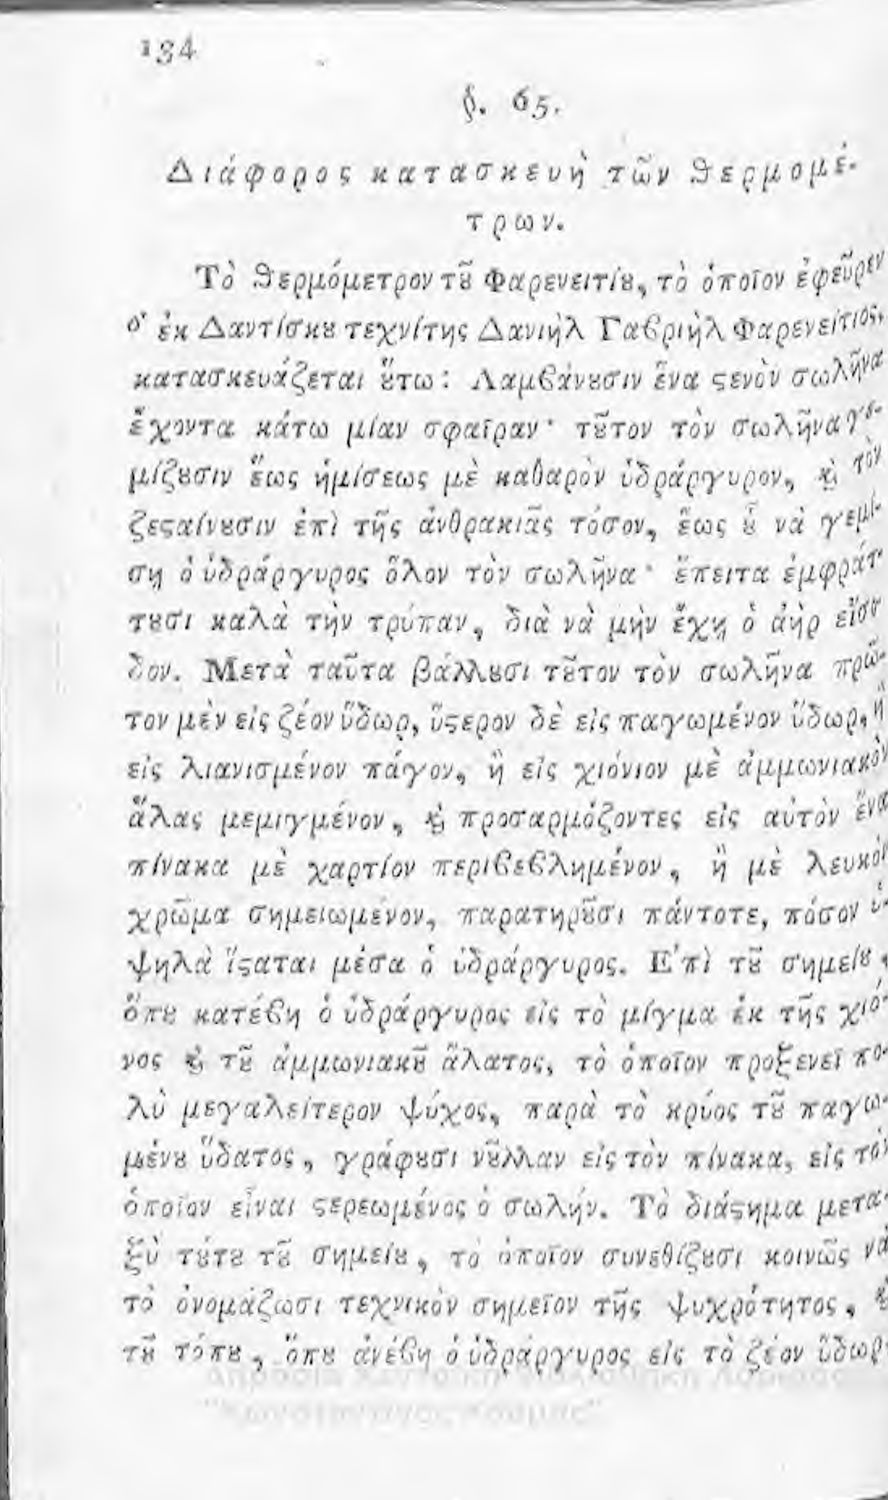 134
§. 65.
Διάφορος κατασκευὴ τῶν ϑερμομέ-
τρων.
Τὸ ϑερμόμετρον τȣ͂ Φαρενειτίȣ, τὸ ὁποῖον ἐφεῦρεν
ὁ ἐκ Δαντίσκȣ τεχνίτης Δανιὴλ Γαϐριὴλ Φαρενείτιος,
κατασκευάζεται ȣ̔́τω: Λαμϐάνȣσιν ἕνα ϛενὸν σωλῆνα
ἔχοντα κάτω μίαν σφαῖραν· τȣ͂τον τὸν σωλῆνα γε-
μίζȣσιν ἕως ἡμίσεως μὲ καθαρὸν ὑδράργυρον, ϗ τὸν
ζεϛαίνȣσιν ἐπὶ τῆς ἀνθρακιᾶς τόσον, ἕως ȣ̔͂ νὰ γεμί-
σῃ ὁ ὑδράργυρος ὅλον τὸν σωλῆνα· ἔπειτα ἐμφράτ-
τȣσι καλὰ τὴν τρύπαν, διὰ νὰ μὴν ἔχῃ ὁ ἀὴρ εἴσο
δον. Μετὰ ταῦτα βάλλȣσι τȣ͂τον τὸν σωλῆνα πρῶ-
τον μὲν εἰς ζέον ὕδωρ, ὕϛερον δὲ εἰς παγωμένον ὕδωρ, ἢ
εἰς λιανισμένον πάγον, ἢ εἰς χιόνιον μὲ ἀμμωνιακὸν
ἅλας μεμιγμένον, ϗ προσαρμόζοντες εἰς αὐτὸν ἕνα
πίνακα μὲ χαρτίον περιϐεϐλημένον, ἢ μὲ λευκὸν
χρῶμα σημειωμένον, παρατηρȣ͂σι πάντοτε, πόσον ὑ-
ψηλὰ ἵϛαται μέσα ὁ ὑδράργυρος. Ἐπὶ τȣ͂ σημείȣ,
ὅπȣ κατέϐη ὁ ὑδράργυρος εἰς τὸ μίγμα ἐκ τῆς χιό-
νος ϗ τȣ͂ ἀμμωνιακȣ͂ ἅλατος, τὸ ὁποῖον προξενεῖ πο-
λὺ μεγαλείτερον ψύχος, παρὰ τὸ κρύος τȣ͂ παγω-
μένȣ ὕδατος, γράφȣσι νȣ͂λλαν εἰς τὸν πίνακα, εἰς τὸν
ὁποῖον εἶναι ϛερεωμένος ὁ σωλήν. Τὸ διάϛημα μετα-
ξὺ τȣ́τȣ τȣ͂ σημείȣ, τὸ ὁποῖον συνεθίζȣσι κοινῶς νὰ
τὸ ὀνομάζωσι τεχνικὸν σημεῖον τῆς ψυχρότητος, ϗ
τȣ͂ τόπȣ, ὅπȣ ἀνέϐη ὁ ὑδράργυρος εἰς τὸ ζέον ὕδωρ